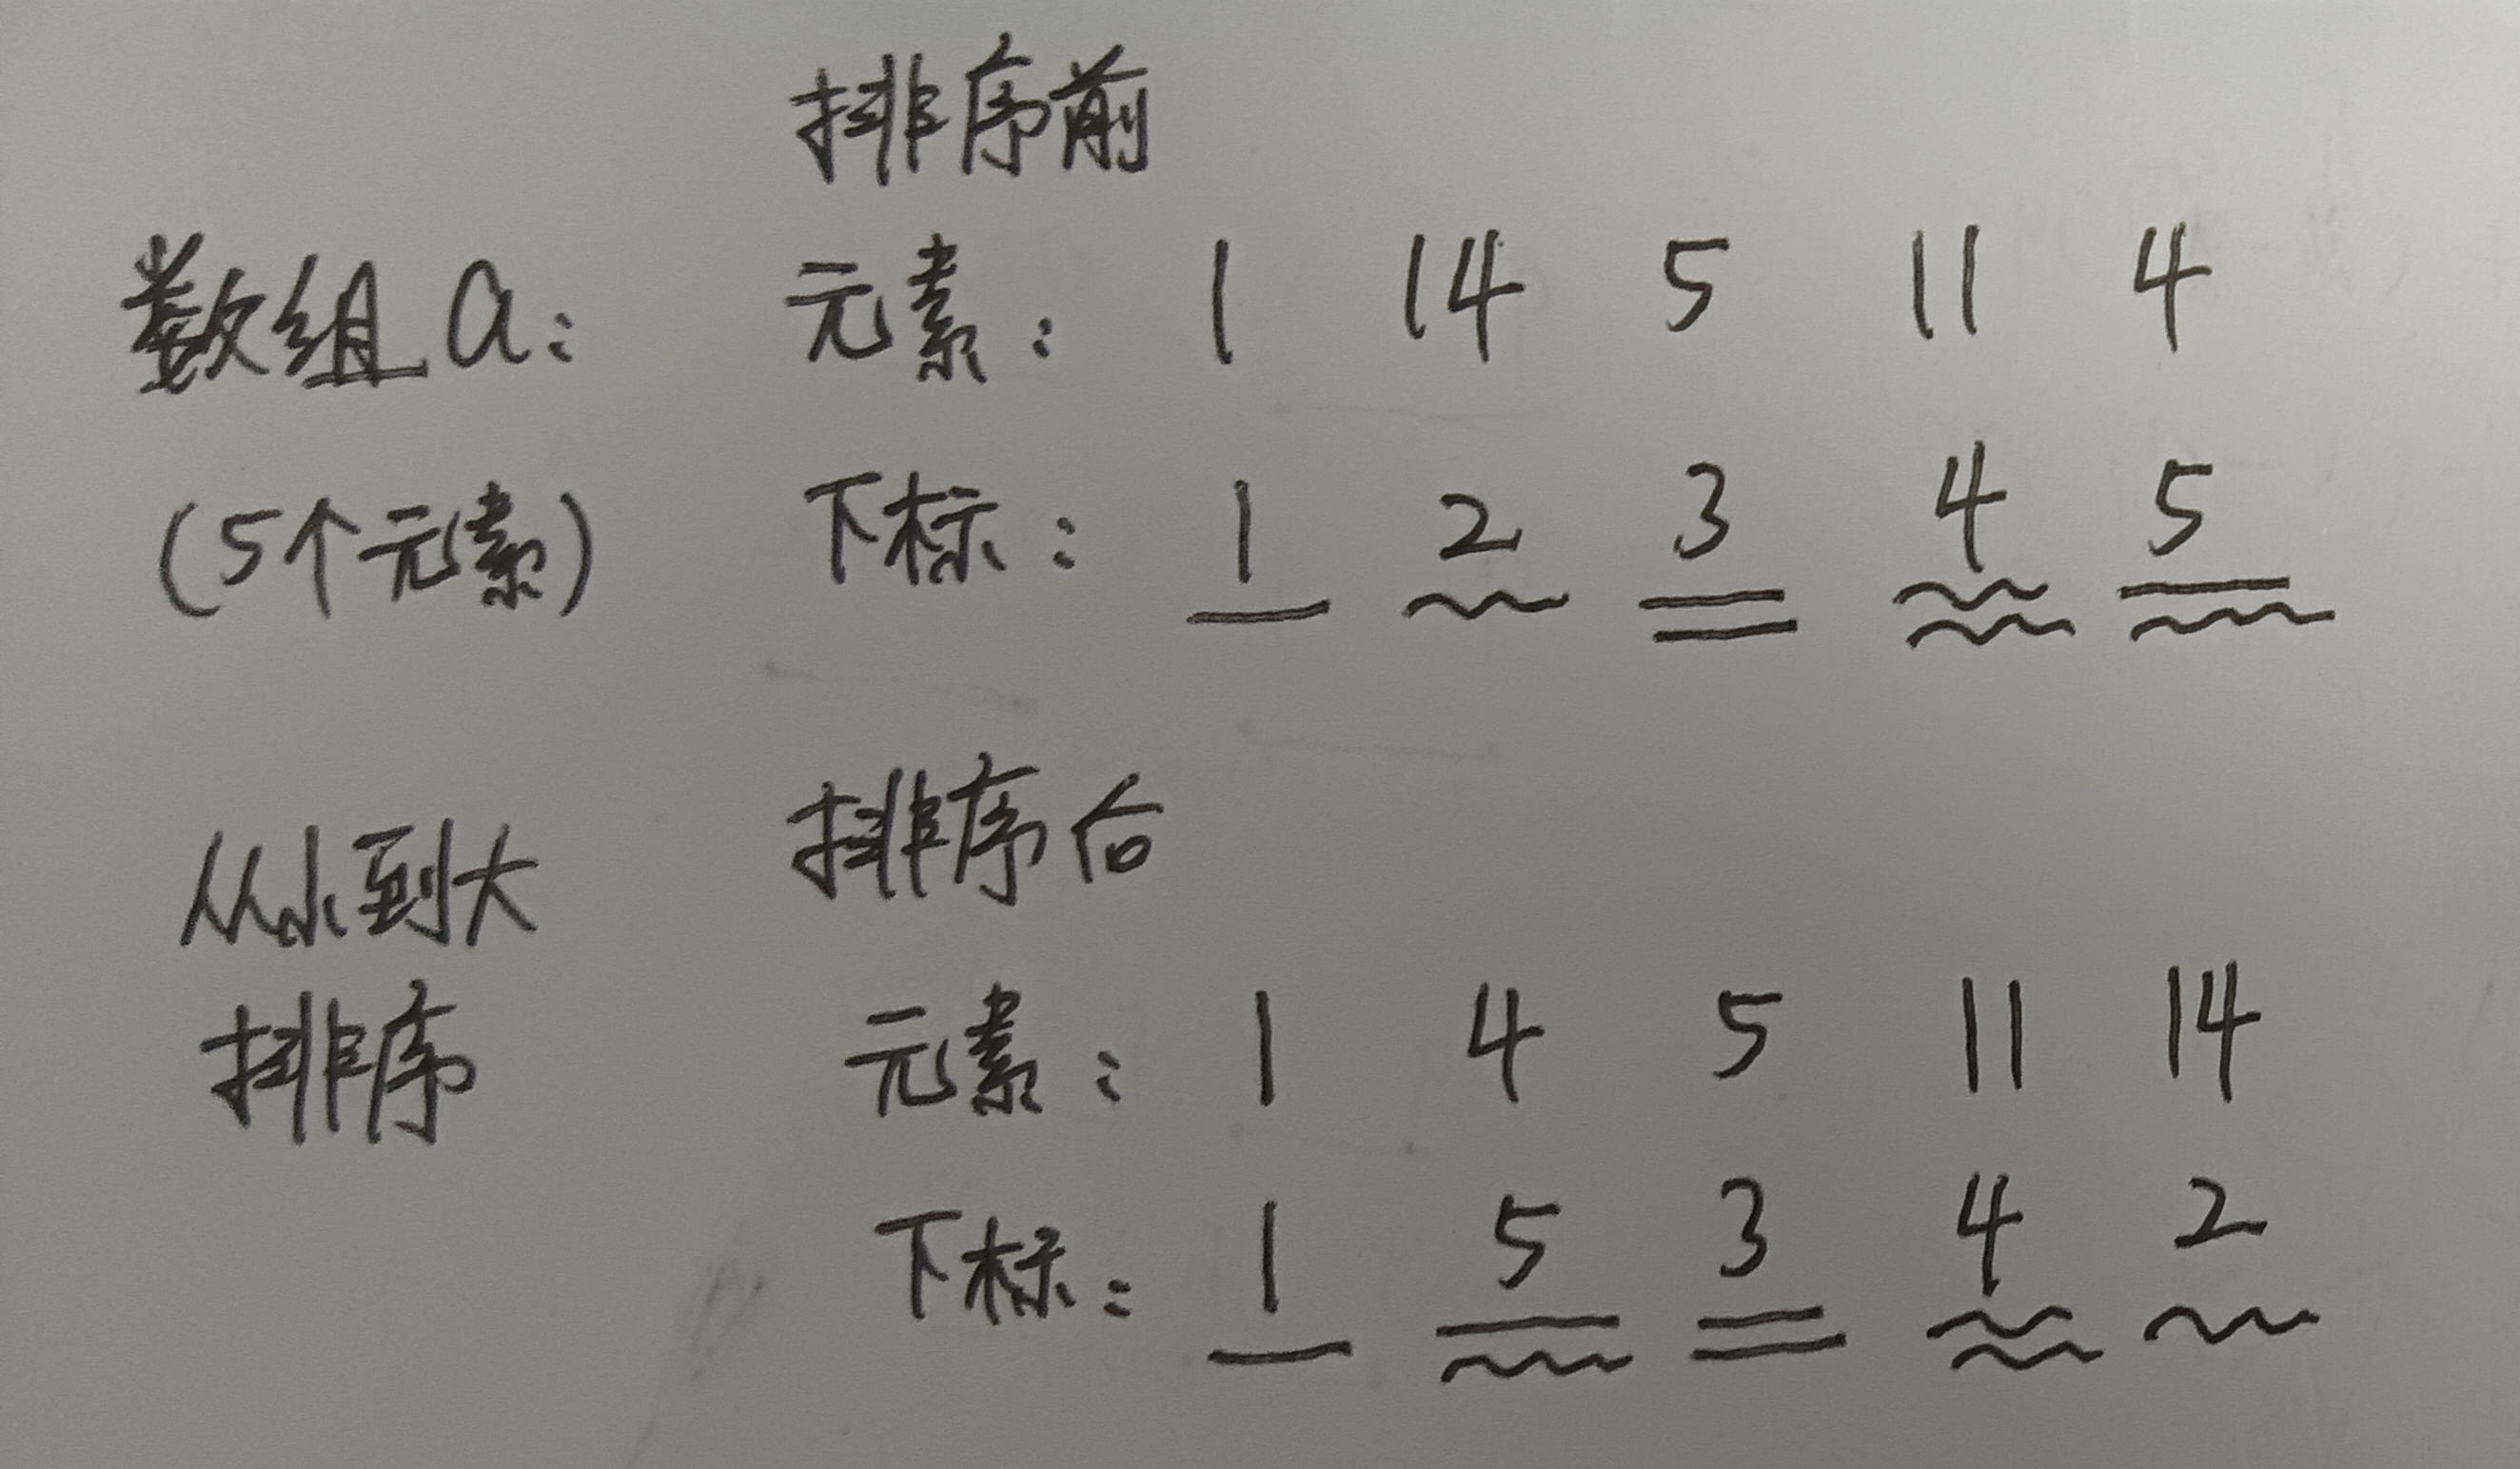 排序前
数组a: 元素: 1 14 5 11 4
(5个元素) 下标: 1 2 3 4 5
排序后
从小到大
排序 元素: 1 4 5 11 14
下标: 1 5 3 4 2